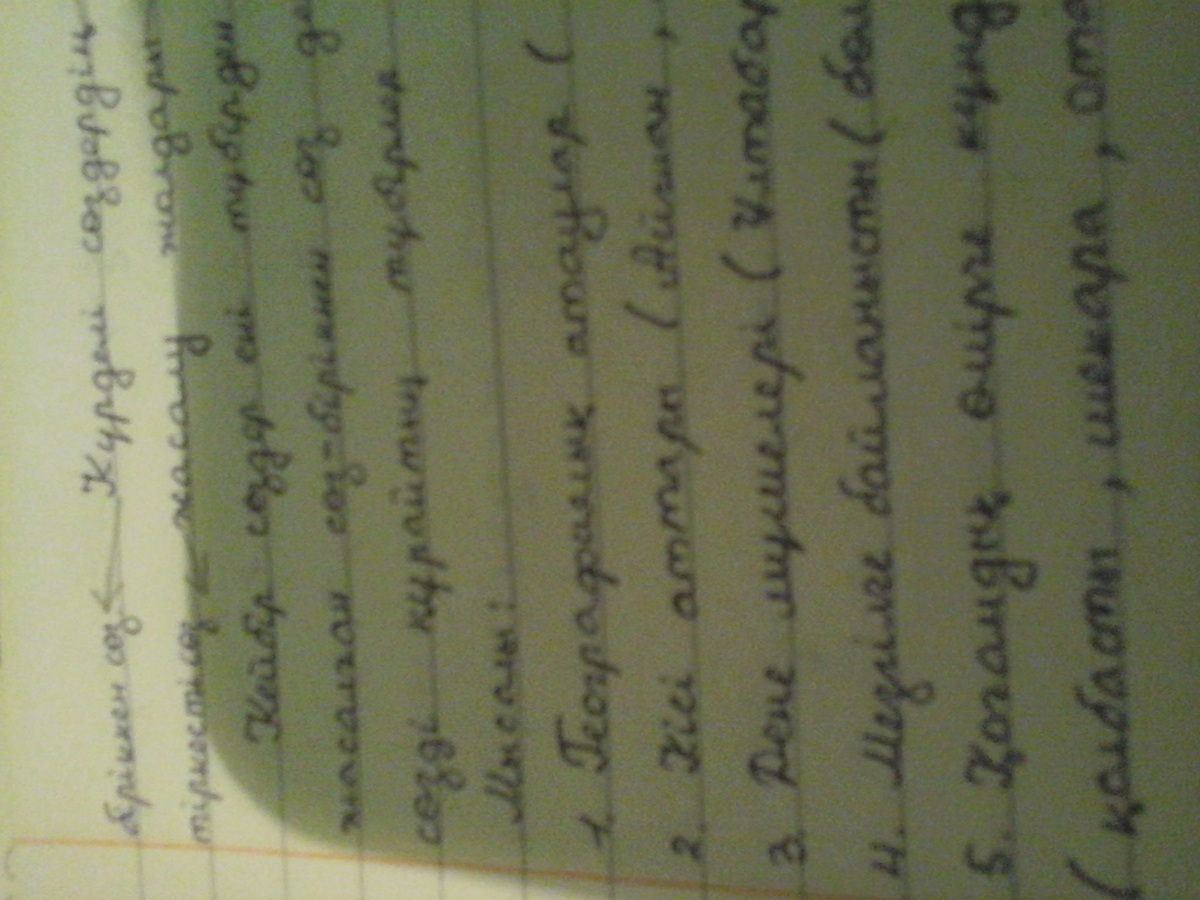 біріккен сөз ← Күрделі сөздердің
тіркесті сөз ← жасалу жолдары
Кейбір сөздер екі түбірден
жасалған сөз-біріккен сөз де
сөзді құрайтың түбірлер
Мысалы:
1. Географиялық атаулар (
2. Кісі аттары (Айжан,
3. Дене мүшелері (Ұлтабар
4. Мезгілге байланысты (бей
5. Қоғамдық өмірге күнд
( қолбасты, шекара, ота